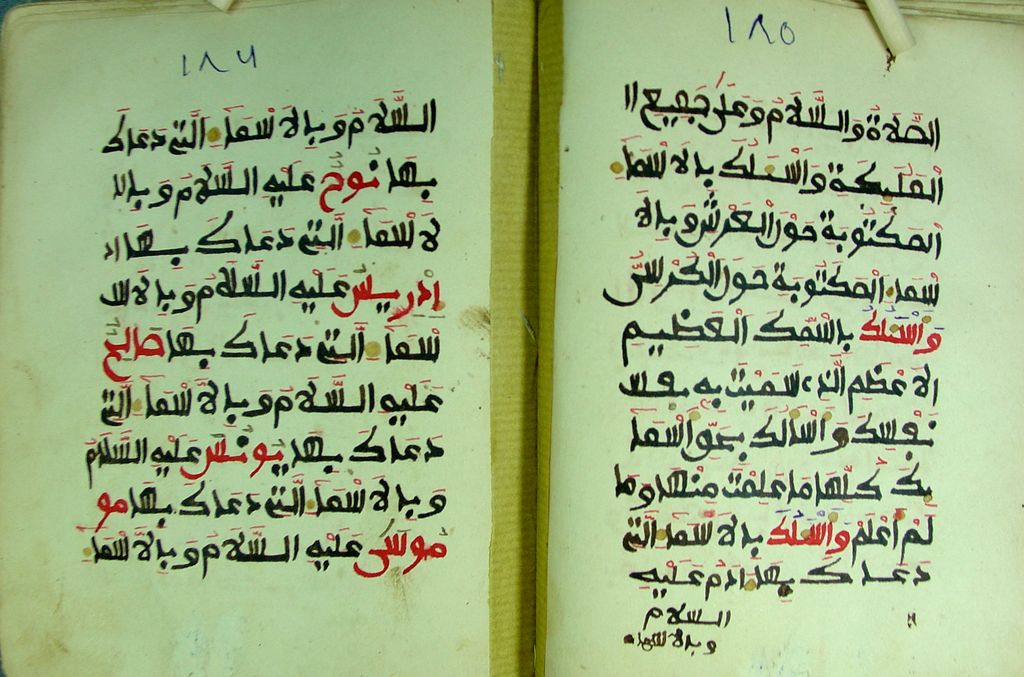 ١٨٥
الصلاة والسلام وعلى جميع ا
الملىكة واسئلك بالاسما
المكتوبة حول العرش وبالا
سما المكتوبة حول الكرسي
واسئلك باسمك العظيم
الاعظم الذي سميت به
نفسك واسالك بحق اسما
يك كلها ما علمت منها وما
لم اعلم واسئلك بالاسما التي
دعاك بها ادم عليه
السلام
وبالاسماء
١٨٦
السلام وبالاسما التي دعاك
بها نوح عليه السلام وبالا
لاسما التي دعاك بها اد
ادريس عليه السلام وبالاس
سما التي دعاك بها صالح
عليه السلام وبالاسما التي
دعاك بها يونس عليه السلام
وبالاسما التي دعاك بها مو
موسى عليه السلام وبالاسما